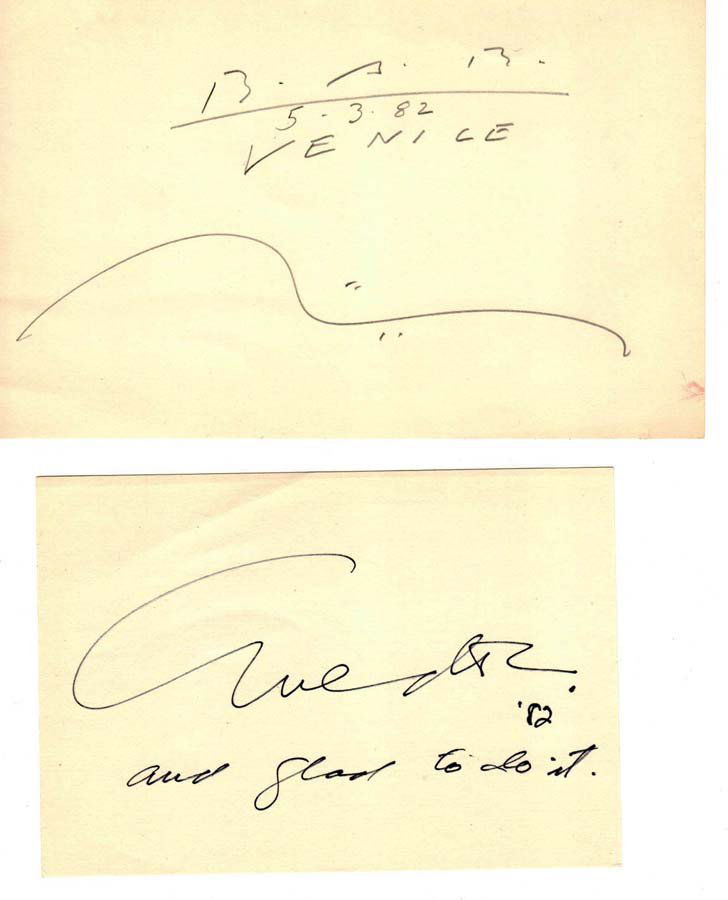 B. A. B.
5.3.82
VENICE
'82
and glad to do it.